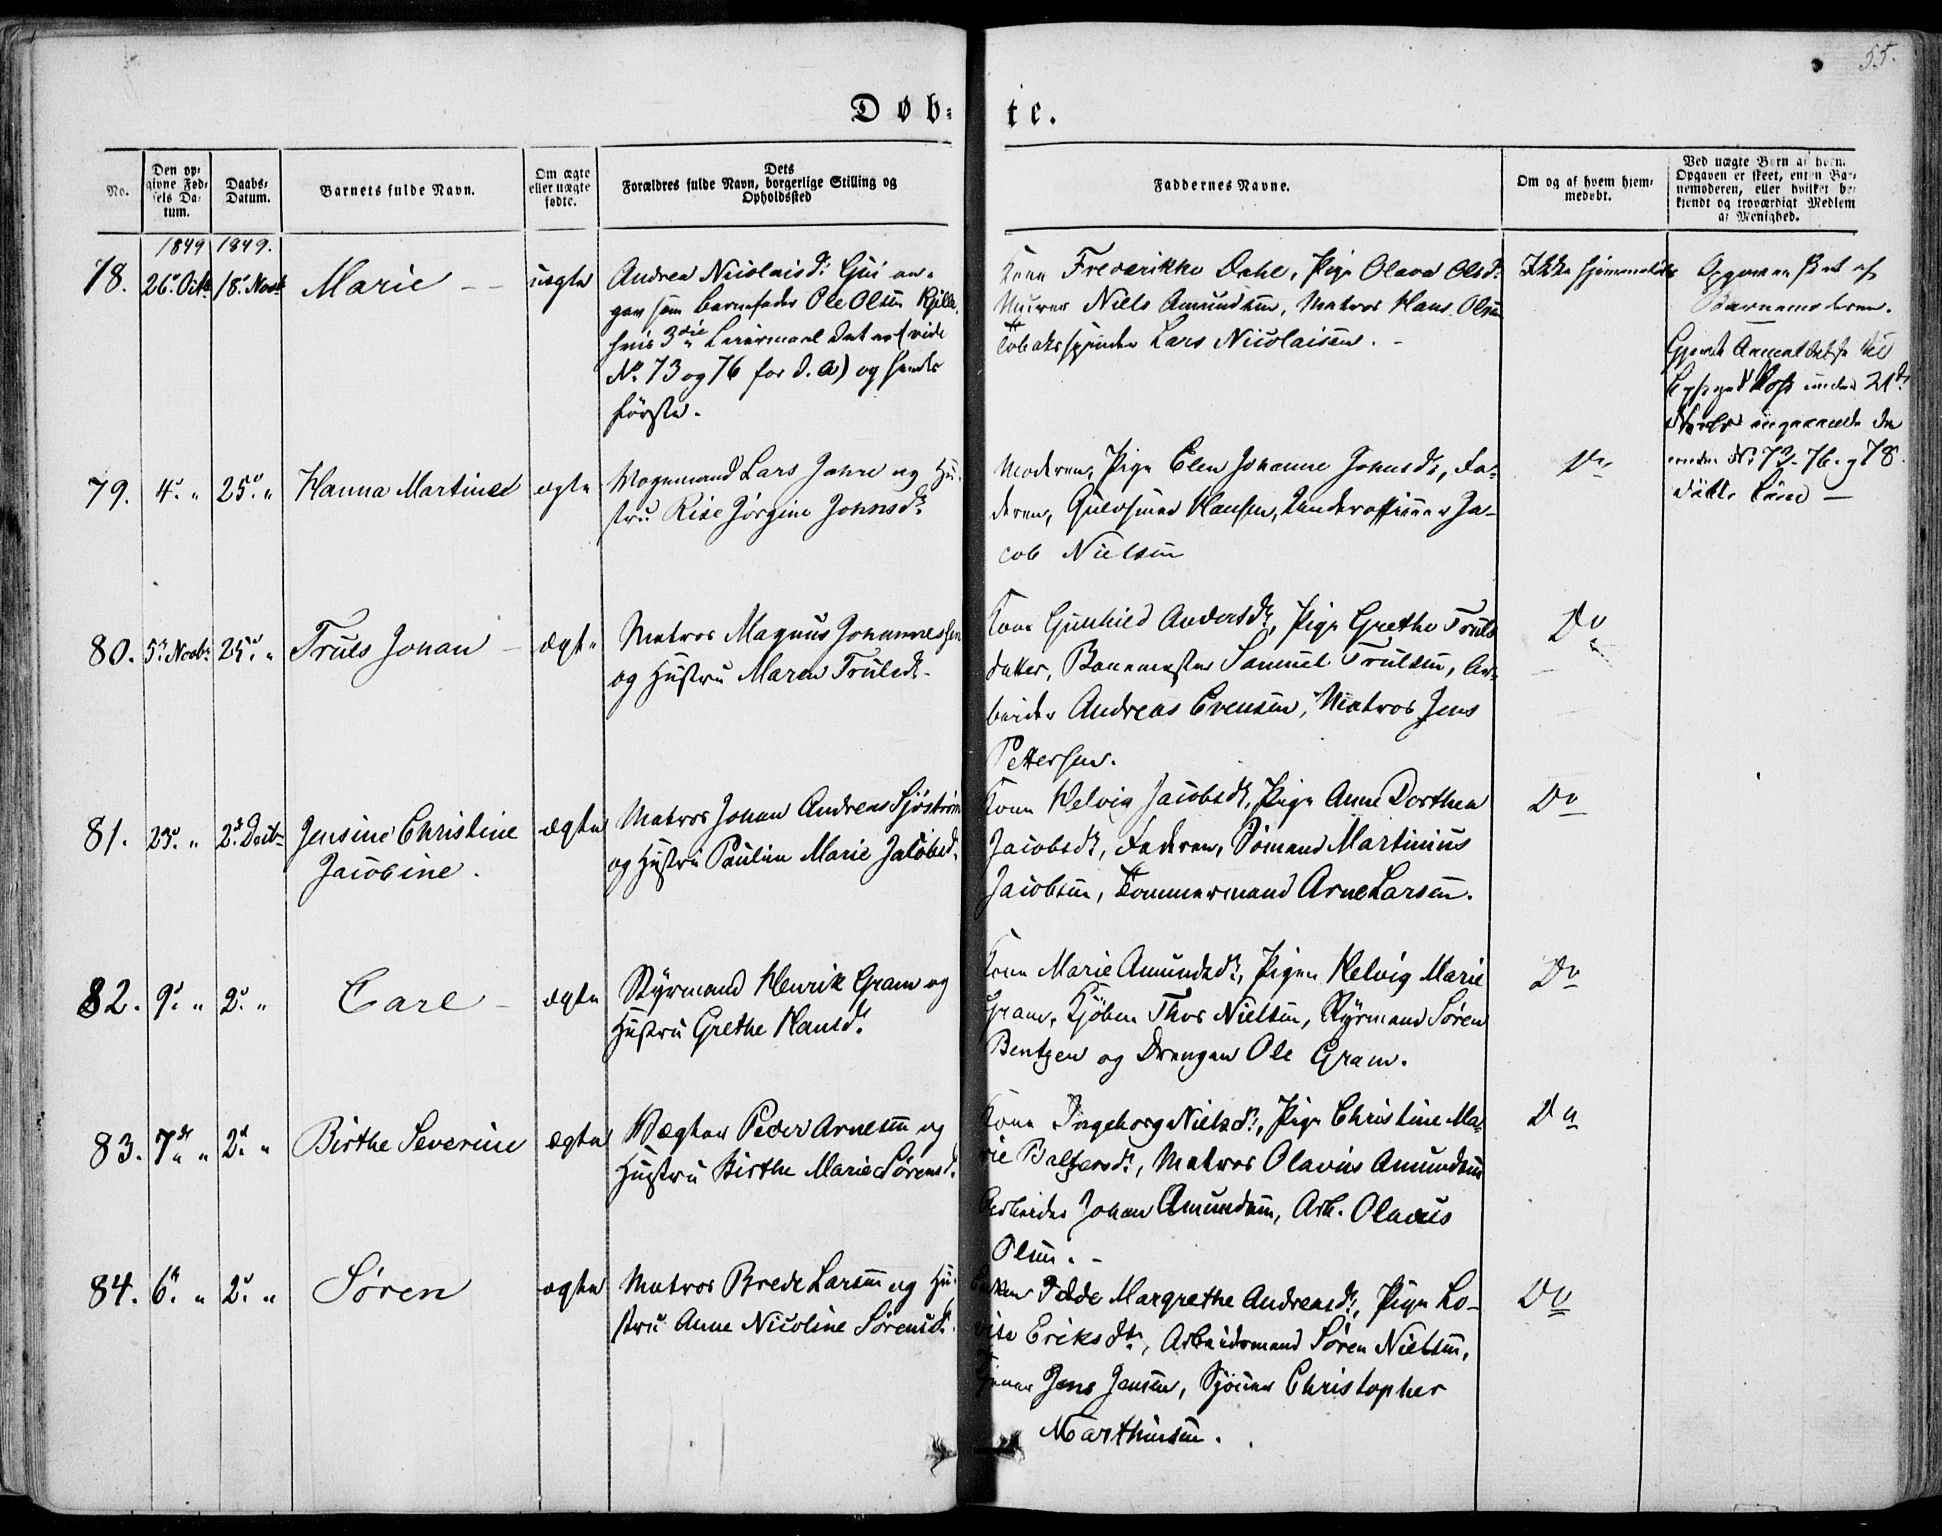 55.
Døb-
te.
No.
Den op-
givne Fød-
sels Da-
tum.
Daabs-
Datum.
Barnets fulde Navn.
Om ægte
eller uægte
fødte.
Dets
Forældres fulde Navn, borgerlige Stilling og
Opholdssted
Faddernes Navne.
Om og af hvem hjem-
medøbt.
Ved uægte Børn af hvem
Opgaven er skeet, enten Bar-
nemoderen, eller hvilket be-
kjendt og troværdigt Medlem
af Menighed.
1849 1849.
78. 26de Octb. 18de Novb. Marie — uægte
Andrea Nicolaisd. Gui an-
gav som Barnefader Ole Olsen
3die Leiermaal (vide
No. 73 og 76 for d. A) og hendes
første.
Kone Frederikke Dahl, Pige Olava Olsdr.
Murer Niels Amundsen, Matros Hans Olsen
Tobaksspinder Lars Nicolaisen. -
Ikke hjemmedøbt
Opgaven skeet af
Barnemoderen.
Gjort Anmeldelse til
under 21de
No. 73. 76. og 78
døbte Børn —
79. 4. " 25. " Hanna Martine ægte
Vognmand Lars Jahre og Hu-
stru Rise Jørgine Johnsdr.
Moderen, Pige Elen Johanne Johnsdr., Fa-
deren, Guldsmed Hansen, Underofficeer Ja-
cob Nielsen
Do
80. 5. Novbr. 25. " Truls Johan — ægte
Matros Magnus Johannessen
og Hustru Maren Trulsdr.
Kone Gunhild Andersdr., Pige Grethe Truls
datter, Banemester Samuel Trulsen, Ar-
beider Andreas Evensen, Matros Jens
Pettersen.
Do
81. 23. " 2. Decbr. Jensine Christine
Jacobine.
ægte
Matros Johan Andreas Sjöström
og Hustru Pauline Marie Jacobsd.
Kone Helvig Jacobsdr., Pige Anne Dorthea
Jacobsdr., Faderen, Sømand Martinius
Jacobsen, Tømmermand Arne Larsen.
Do
82. 9. " 2. " Carl — ægte
Styrmand Henrik Gram og
Hustru Grethe Hansdr.
Kone Marie Amundsdr., Pigen Helvig Marie
Gram, Kjøbm Thor Nielsen, Styrmand Søren
Bentzen og Drengen Ole Gram.
Do
83. 7de " 2. " Birthe Severine ægte
Vægter Peder Arnesen og
Hustru Birthe Marie Sørensd.
Kone Ingeborg Nielsdr., Pige Christine Ma-
rie Baltzersdr., Matros Olavius Amundsen
Arbeider Johan Amundsen, Arb. Olavus
Olsen. -
Do
84. 6. " 2. " Søren ægte
Matros Brede Larsen og Hu-
stru Anne Nicoline Sørensdr.
Enken Margrethe Andreasdr., Pige Lo-
vise Eriksdtr., Arbeidsmand Søren Nielsen,
Jens Jensen, Christopher
Marthinsen.
Do